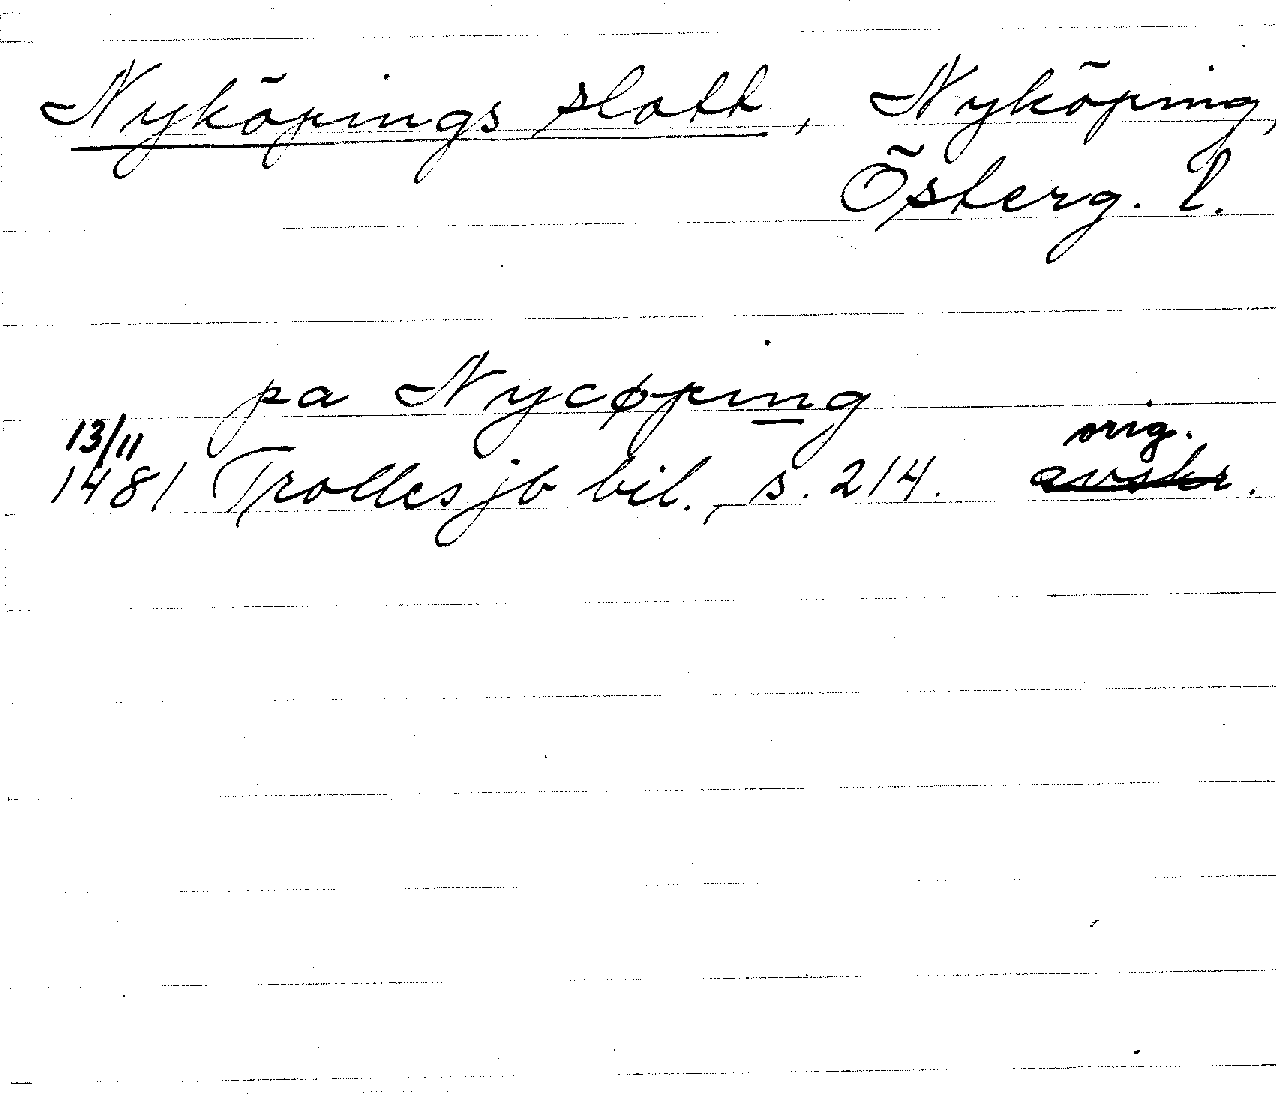 Nyköpings slott, Nyköping,
Österg. l.
pa Nycøping
13/11 orig.
1481 Trolles jb bil., s. 214. avskr.